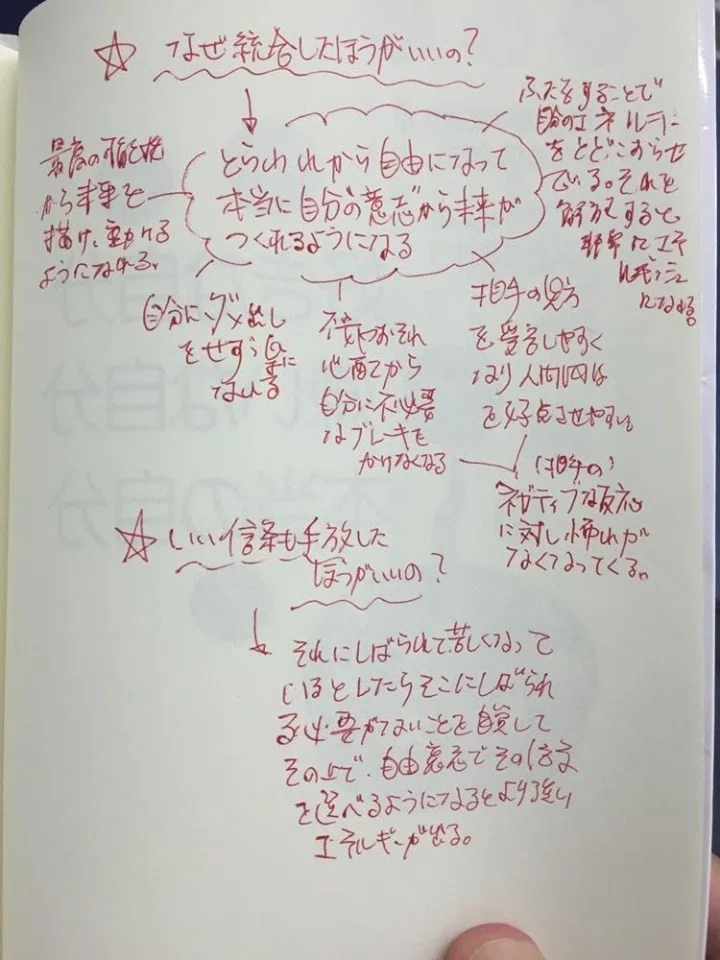 ☆ なぜ統合したほうがいいの?
とらわれから自由になって
本当に自分の"意志"から未来が
つくれるようになる
最高の可能性
から未来を
描け、動ける
ようになれる。
ふたをすることで
自分のエネルギー
をとどこおらせ
ている。それを
解放すると
になれる。
自分にダメ出し
をせず
なれる
不安やおそれ
心配から
自分に不必要
なブレーキを
かけなくなる
相手の見方
を受容しやすく
なり人間関係
を好点させやすい。
(相手の)
ネガティブな反応
に対し怖れが
なくなってくる。
☆ いい信条も手放した
ほうがいいの?
それにしばられて苦しくなって
いるとしたらそこにしばられ
る必要がないことを自覚して
その上で、自由意志でその信条
を選べるようになるとより強い
エネルギーが出る。